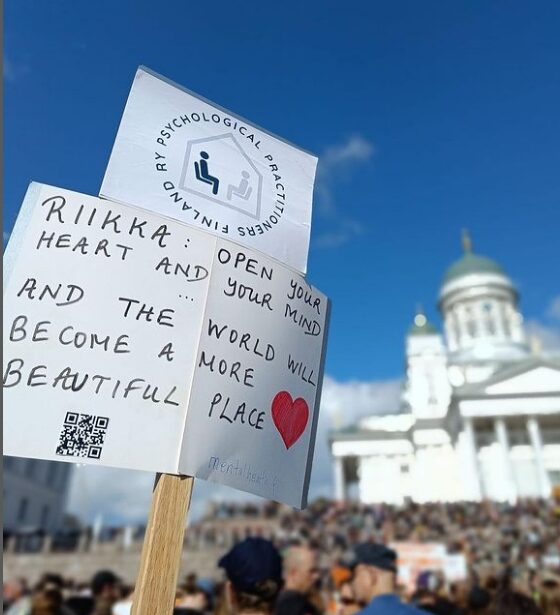 PSYCHOLOGICAL PRACTITIONERS FINLAND RY
RIIKKA: OPEN YOUR
HEART AND YOUR MIND
...
AND THE WORLD WILL
BECOME A MORE
BEAUTIFUL PLACE